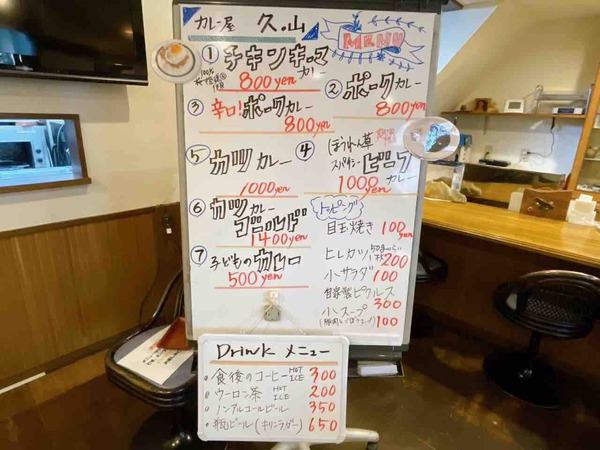 カレー屋 久.山
MENU
① チキンキーマカレー
800yen
② ポークカレー
800yen
③ 辛口!ポークカレー
800yen
⑤ カツカレー
1000yen
④ ほうれん草
スパイシービーフカレー
1000yen
⑥ カツカレーゴールド
1400yen
⑦ 子どものカレー
500yen
トッピング
目玉焼き 100yen
ヒレカツ 200
小サラダ 100
自家製ピクルス
300
小スープ
100
Drink メニュー
食後のコーヒー HOT ICE 300
ウーロン茶 HOT ICE 200
ノンアルコールビール 350
瓶ビール(キリンラガー) 650